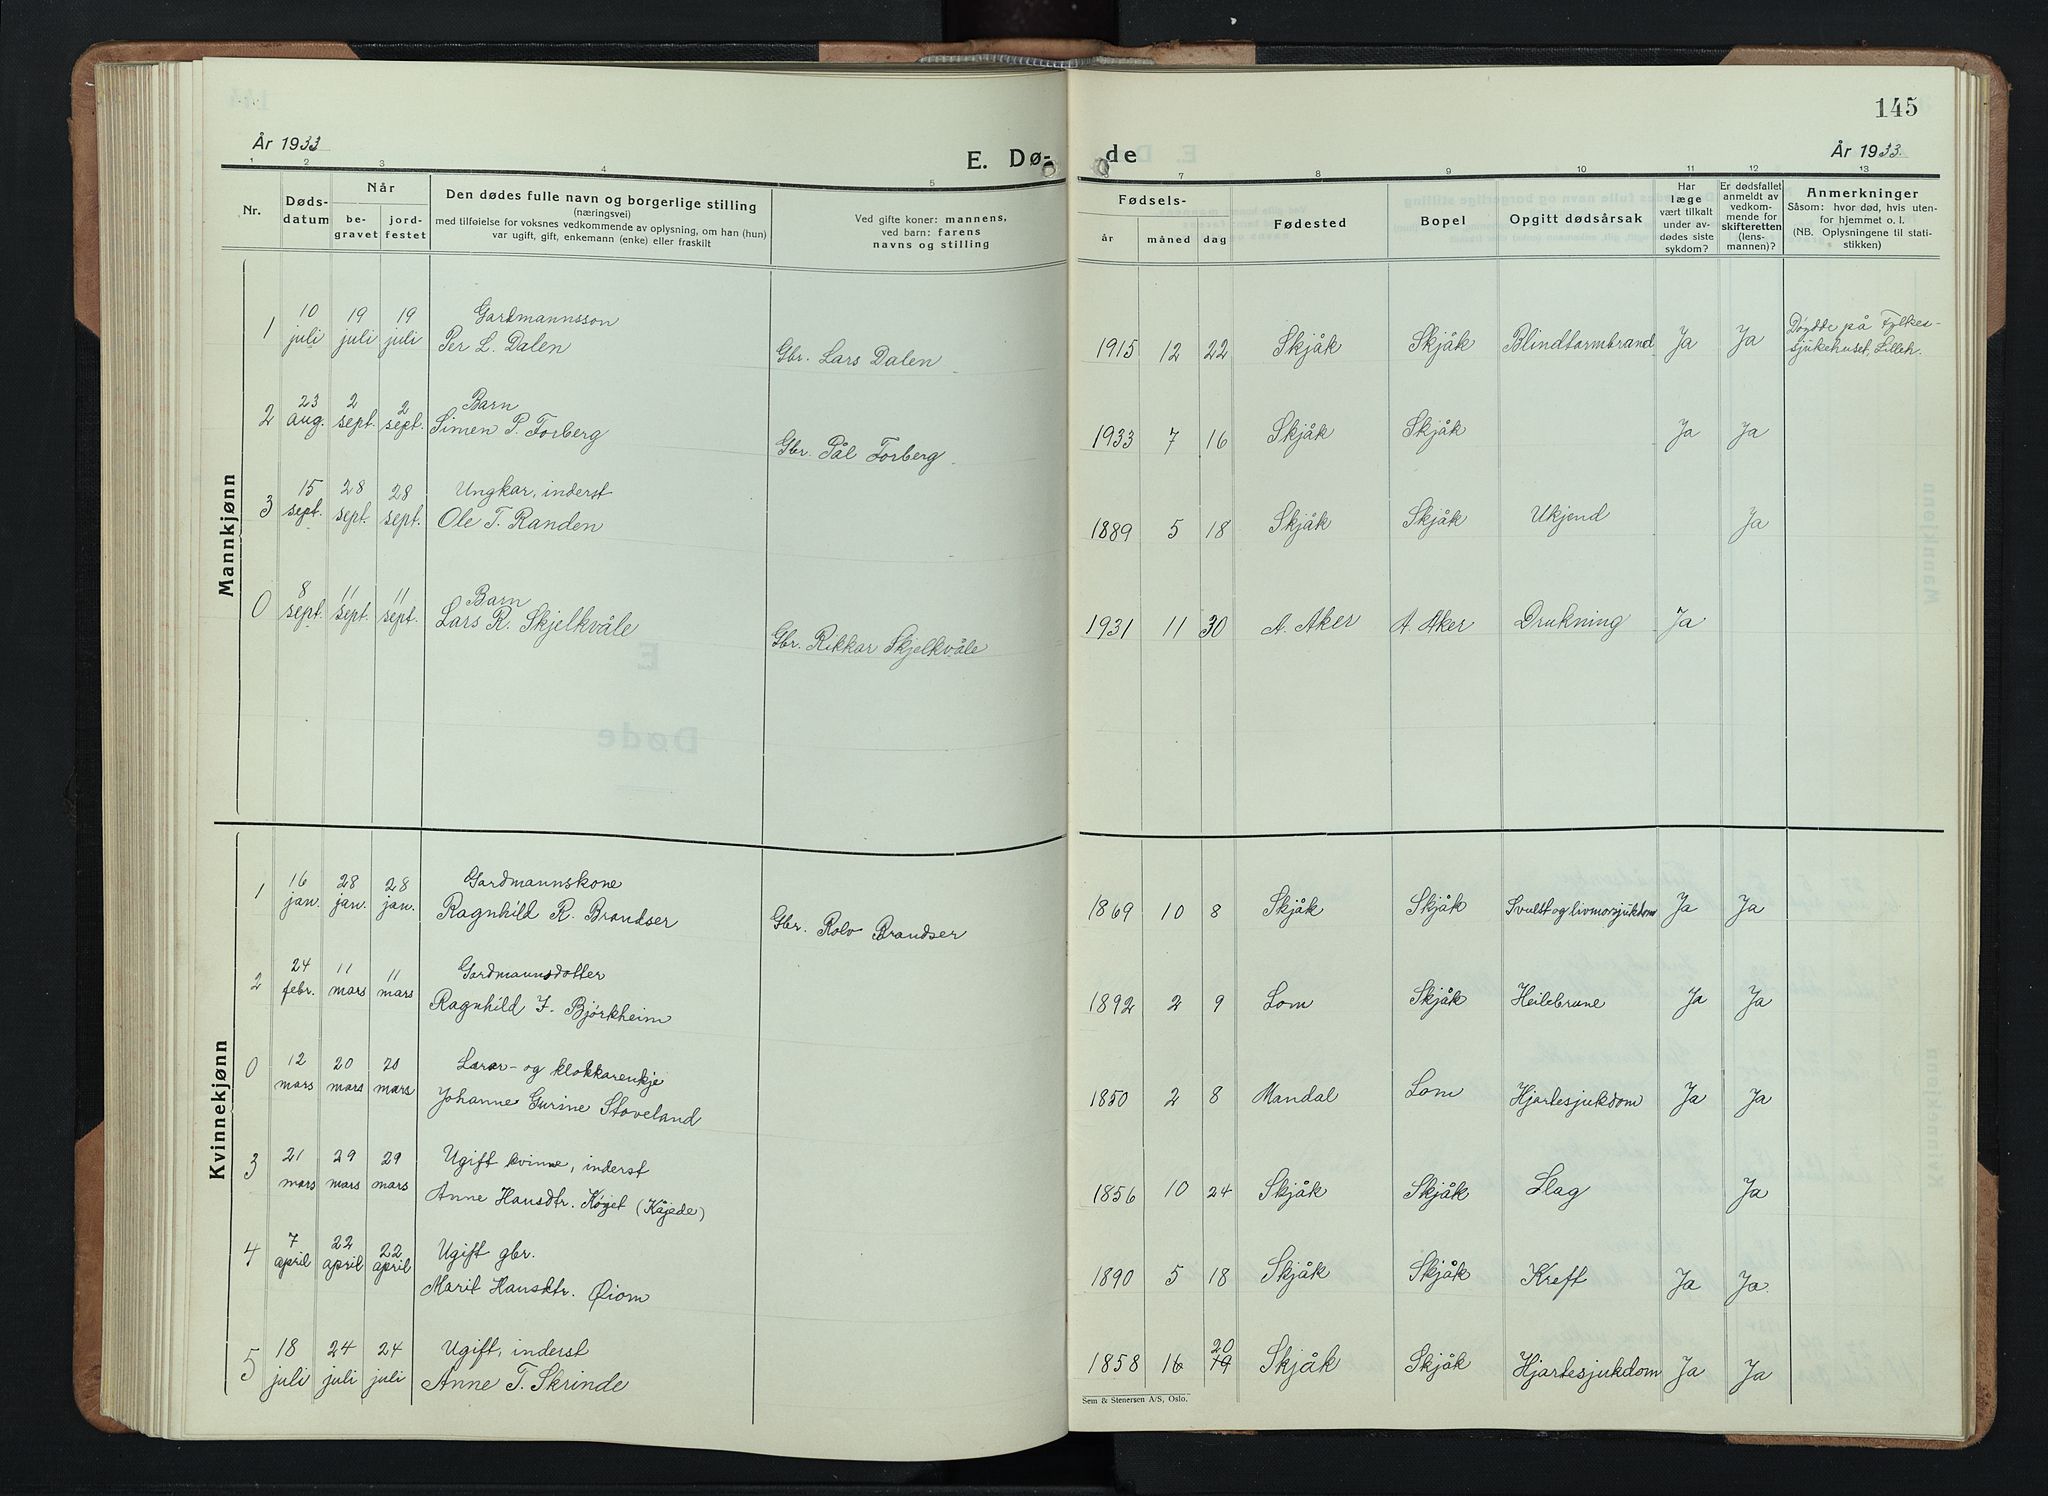 145
År 1933
År 1933.
E. Dø-
de
1 2 3 4 5 6 7 8 9 10 11 12 13
Nr.
Døds-
datum
Når
be-
gravet
jord-
festet
Den dødes fulle navn og borgerlige stilling
(næringsvei)
med tilføielse for voksnes vedkommende av oplysning, om han (hun)
var ugift, gift, enkemann (enke) eller fraskilt
Ved gifte koner: mannens,
ved barn: farens
navns og stilling
Fødsels-
år måned dag
Fødested
Bopel
Opgitt dødsårsak
Har
læge
vært tilkalt
under av-
dødes siste
sykdom?
Er dødsfallet
anmeldt av
vedkom-
mende for
skifteretten
(lens-
mannen)?
Anmerkninger
Såsom: hvor død, hvis uten-
for hjemmet o. l.
(NB. Oplysningene til stati-
stikken)
Mannkjønn
1 10 juli 19 juli 19 juli Gardmannsson
Per L. Dalen Gbr. Lars Dalen 1915 12 22 Skjåk Skjåk Blindtarmbrand Ja Ja Døydde på Fylkes-
sjukehuset, Lilleh.
2 23 aug. 2 sept. 2 sept. Barn
Simen P. Forberg Gbr. Pål Forberg 1933 7 16 Skjåk Skjåk Ja Ja
3 15 sept. 28 sept. 28 sept. Ungkar, inderst
Ole T. Randen 1889 5 18 Skjåk Skjåk Ukjend Ja
0 8 sept. 11 sept. 11 sept. Barn
Lars R. Skjelkvåle Gbr. Rikkar Skjelkvåle 1931 11 30 A. Aker A. Aker Drukning Ja
Kvinnekjønn
1 16 jan. 28 jan. 28 jan. Gardmannskone
Ragnhild R. Brandser Gbr. Rolv Brandser 1869 10 8 Skjåk Skjåk Svulst og livmorsjukdom Ja Ja
2 24 febr. 11 mars 11 mars Gardmannsdotter
Ragnhild J. Bjørkheim 1892 2 9 Lom Skjåk Heilebrune Ja Ja
0 12 mars 20 mars 20 mars Lærar- og klokkarenkje
Johanne Gurine Stoveland 1850 2 8 Mandal Lom Hjartesjukdom Ja Ja
3 21 mars 29 mars 29 mars Ugift kvinne, inderst
Anne Hansdtr. Køyet (Kåjede) 1856 10 24 Skjåk Skjåk Slag Ja
4 7 april 22 april 22 april Ugift gbr.
Marit Hansdtr. Øiom 1890 5 18 Skjåk Skjåk Kreft Ja Ja.
5 18 juli 24 juli 24 juli Ugift, inderst
Anne T. Skrinde 1858 20 19 Skjåk Skjåk Hjartesjukdom Ja Ja
Sem & Stenersen A/S, Oslo.